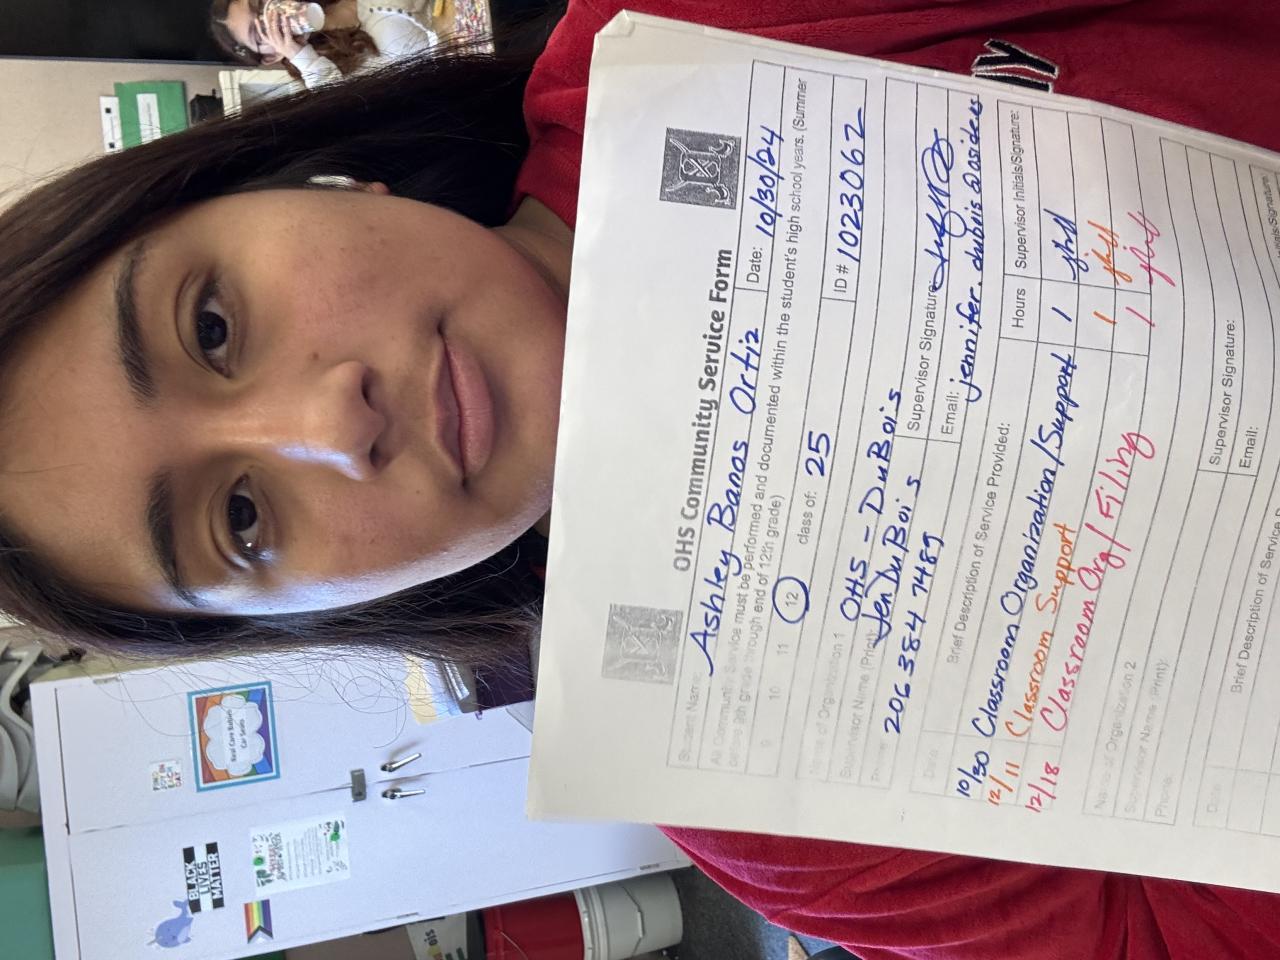 OHS Community Service Form
Student Name: Ashley Banos Ortiz Date: 10/30/24
All Community Service must be performed and documented within the student's high school years. (Summer
before 9th grade through end of 12th grade)
9 10 11 12 class of: 25 ID # 1023067
Name of Organization 1 OHS - DuBois
Supervisor Name (Print): Jen DuBois Supervisor Signature:
Phone: 206 384 7489 Email: jennifer.dubois@osideus
Date Brief Description of Service Provided: Hours Supervisor Initials/Signature:
10/30 Classroom Organization/Support 1
12/11 Classroom Support 1
12/18 Classroom Org/Filing 1
Name of Organization 2
Supervisor Name (Print): Supervisor Signature:
Phone: Email:
Date Brief Description of Service
Real Care Babies
Car Seats
FIND
JOY IN
EACH
DAY
BLACK
LIVES
MATTER